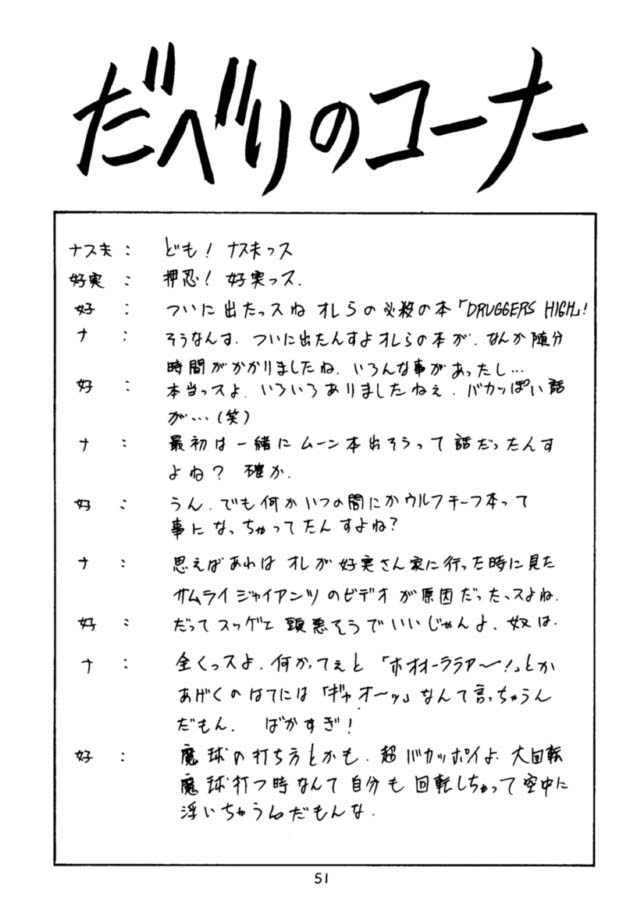 だべりのコーナー
ナス夫： ども！ナス夫っス
好実： 押忍！好実っス.
好： ついに出たっスね オレらの必殺の本「DRUGGERS HIGH」!
ナ： そうなんす. ついに出たんすよオレらの本が. なんか随分
時間がかかりましたね. いろんな事があったし…
好： 本当っスよ. いろいろありましたねぇ. バカっぽい話
が…(笑)
ナ： 最初は一緒にムーン本出そうって話だったんす
よね？確か.
好： うん. でも何かいつの間にかウルフチーフ本って
事になっちゃってたんすよね？
ナ： 思えばあれはオレが好実さん家に行った時に見た
サムライジャイアンツのビデオが原因だったっスよね.
好： だってスッゲエ頭悪そうでいいじゃんよ. 奴は.
ナ： 全くっスよ. 何かってぇと「ホオオーララアー！」とか
あげくのはてには「ギャオーッ」なんて言っちゃうん
だもん. ばかすぎ！
好： 魔球の打ち方とかも. 超バカッポイよ. 大回転
魔球打つ時なんて自分も回転しちゃって空中に
浮いちゃうんだもんな.
51